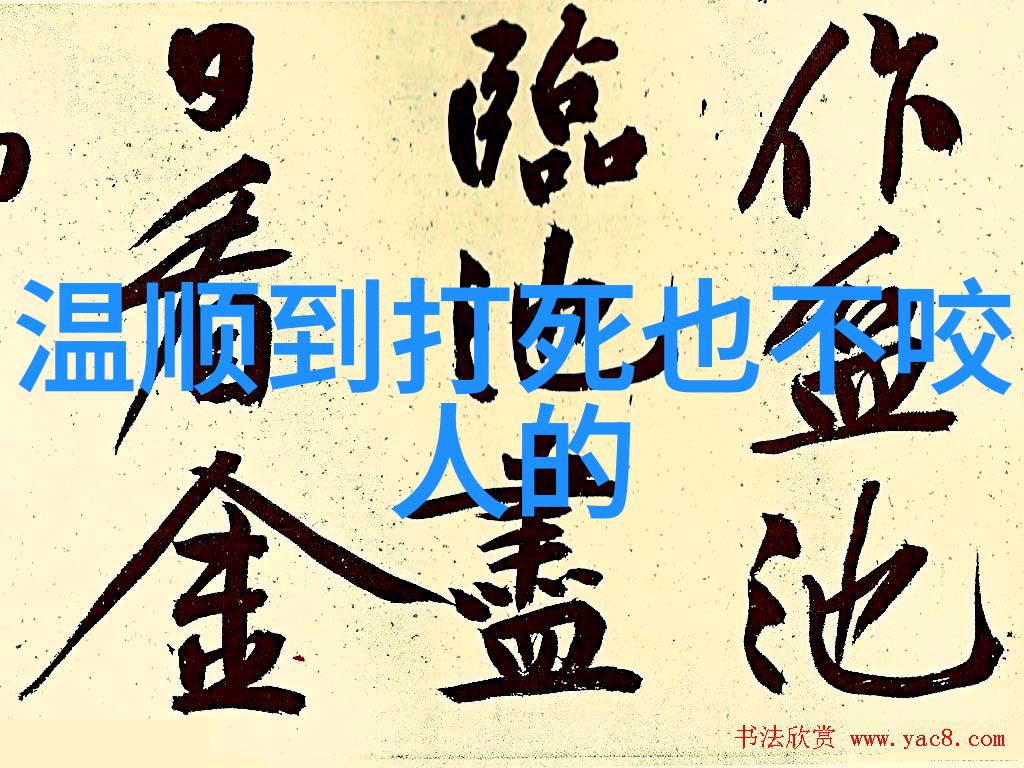 作盆池
臨池盡
日看金
温顺到打死也不咬
人的
书法欣赏 www.yac8.com